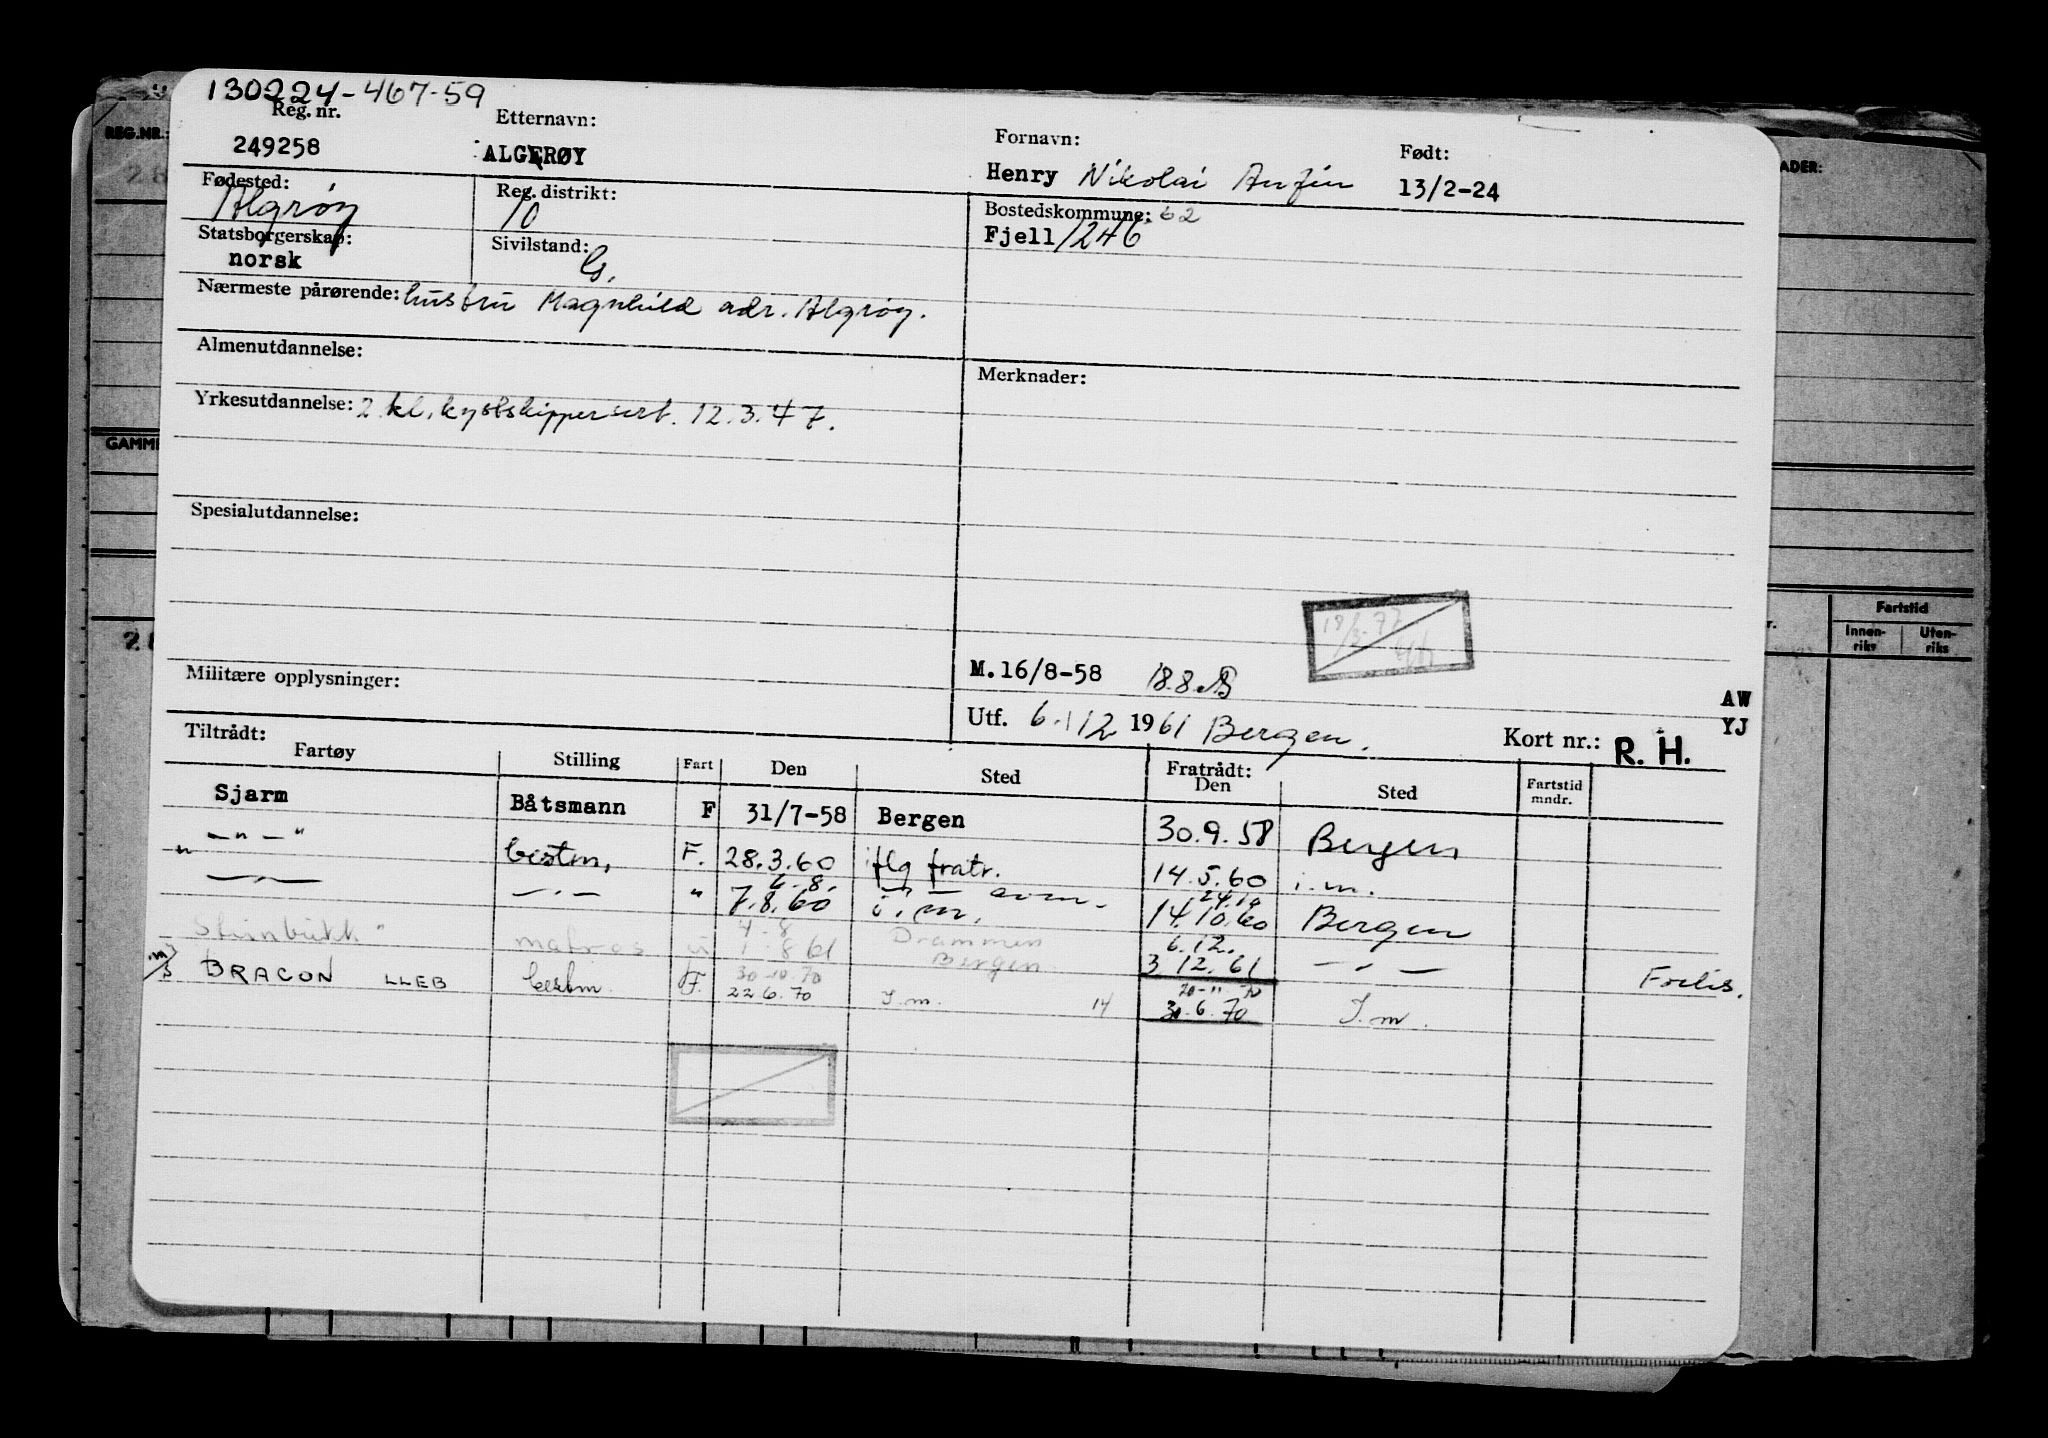 130224-467-59
Reg. nr. Etternavn: Fornavn: Født:
249258 ALGERØY Henry Nikolai Anfin 13/2-24
Fødested: Algrøy Reg. distrikt: 10 Bostedskommune: 62
Fjell 1246
Statsborgerskap: norsk Sivilstand: G.
Nærmeste pårørende: hustru Magnhild adr. Algrøy.
Almenutdannelse: Merknader:
Yrkesutdannelse: 2 kl. kystskippersert. 12.3.47.
Spesialutdannelse:
18/3-77
Militære opplysninger: M.16/8-58 18.8. AW
Utf. 6. 12 1961 Bergen. Kort nr.: R. H. YJ
Tiltrådt: Fratrådt:
Fartøy Stilling Fart Den Sted Den Sted Fartstid mndr.
Sjarm Båtsmann F 31/7-58 Bergen 30.9.58 Bergen
— " — " bestm, F. 28.3.60 flg fratr. 14.5.60 i. m.
2.8. 24.10
" — " — — " — " 7.8.60 i. m. 14.10.60 Bergen
4-8 Drammen 6.12.
matros u 1.8 61 Bergen 3 12.61 — " — Forlis.
30-10.70 20-11-70
m/s BRAGON LLEB bestm. F. 22 6.70 I. m. 14 30.6.70 I. m.
REG.NR.:
GAMME
28
ADER:
Fartstid
Innen-riks Uten-riks